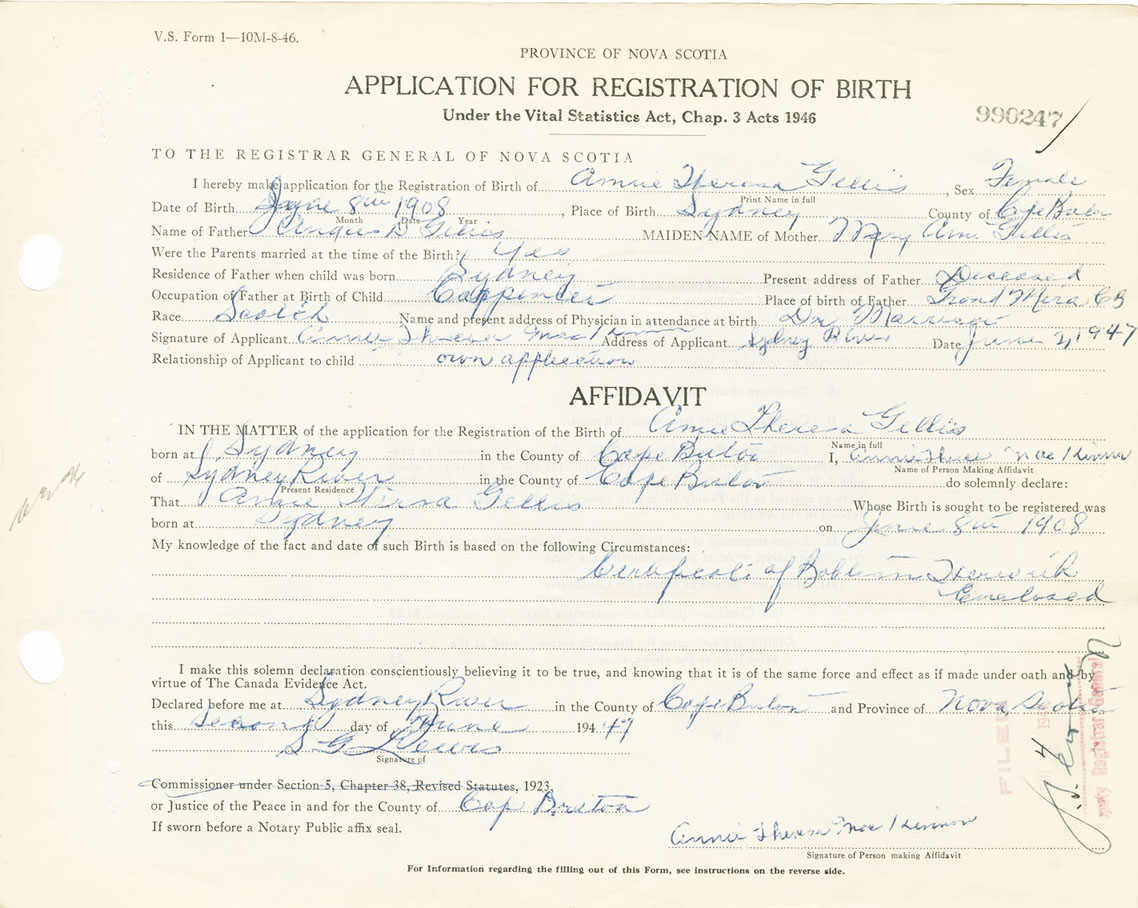 V.S. Form 1—10M-8-46.
PROVINCE OF NOVA SCOTIA
APPLICATION FOR REGISTRATION OF BIRTH
Under the Vital Statistics Act, Chap. 3 Acts 1946
990247
TO THE REGISTRAR GENERAL OF NOVA SCOTIA
I hereby make application for the Registration of Birth of Annie Theresa Gillis, Sex Female
Print Name in full
Date of Birth June 8th 1908, Place of Birth Sydney County of Cape Breton
Month Date Year
Name of Father Angus D Gillis MAIDEN NAME of Mother Mary Ann Gillis
Were the Parents married at the time of the Birth? Yes
Residence of Father when child was born Sydney Present address of Father Deceased
Occupation of Father at Birth of Child Carpenter Place of birth of Father Grand Mira CB
Race Scotch Name and present address of Physician in attendance at birth Dr
Signature of Applicant Annie Theresa MacKinnon Address of Applicant Sydney River Date June 2, 1947
Relationship of Applicant to child own application
AFFIDAVIT
IN THE MATTER of the application for the Registration of the Birth of Annie Theresa Gillis
Name in full
born at Sydney in the County of Cape Breton I, Annie Theresa MacKinnon
Name of Person Making Affidavit
of Sydney River in the County of Cape Breton do solemnly declare:
Present Residence
That Annie Theresa Gillis Whose Birth is sought to be registered was
born at Sydney on June 8th 1908
My knowledge of the fact and date of such Birth is based on the following Circumstances:
Certificate of Baptism Herewith
Enclosed
I make this solemn declaration conscientiously believing it to be true, and knowing that it is of the same force and effect as if made under oath and by
virtue of The Canada Evidence Act.
Declared before me at Sydney River in the County of Cape Breton and Province of Nova Scotia
this Second day of June 1947
S G Lewis
Signature of
Commissioner under Section 5, Chapter 38, Revised Statutes, 1923,
or Justice of the Peace in and for the County of Cape Breton
If sworn before a Notary Public affix seal.
Annie Theresa MacKinnon
Signature of Person making Affidavit
For Information regarding the filling out of this Form, see instructions on the reverse side.
FILED
Deputy Registrar General